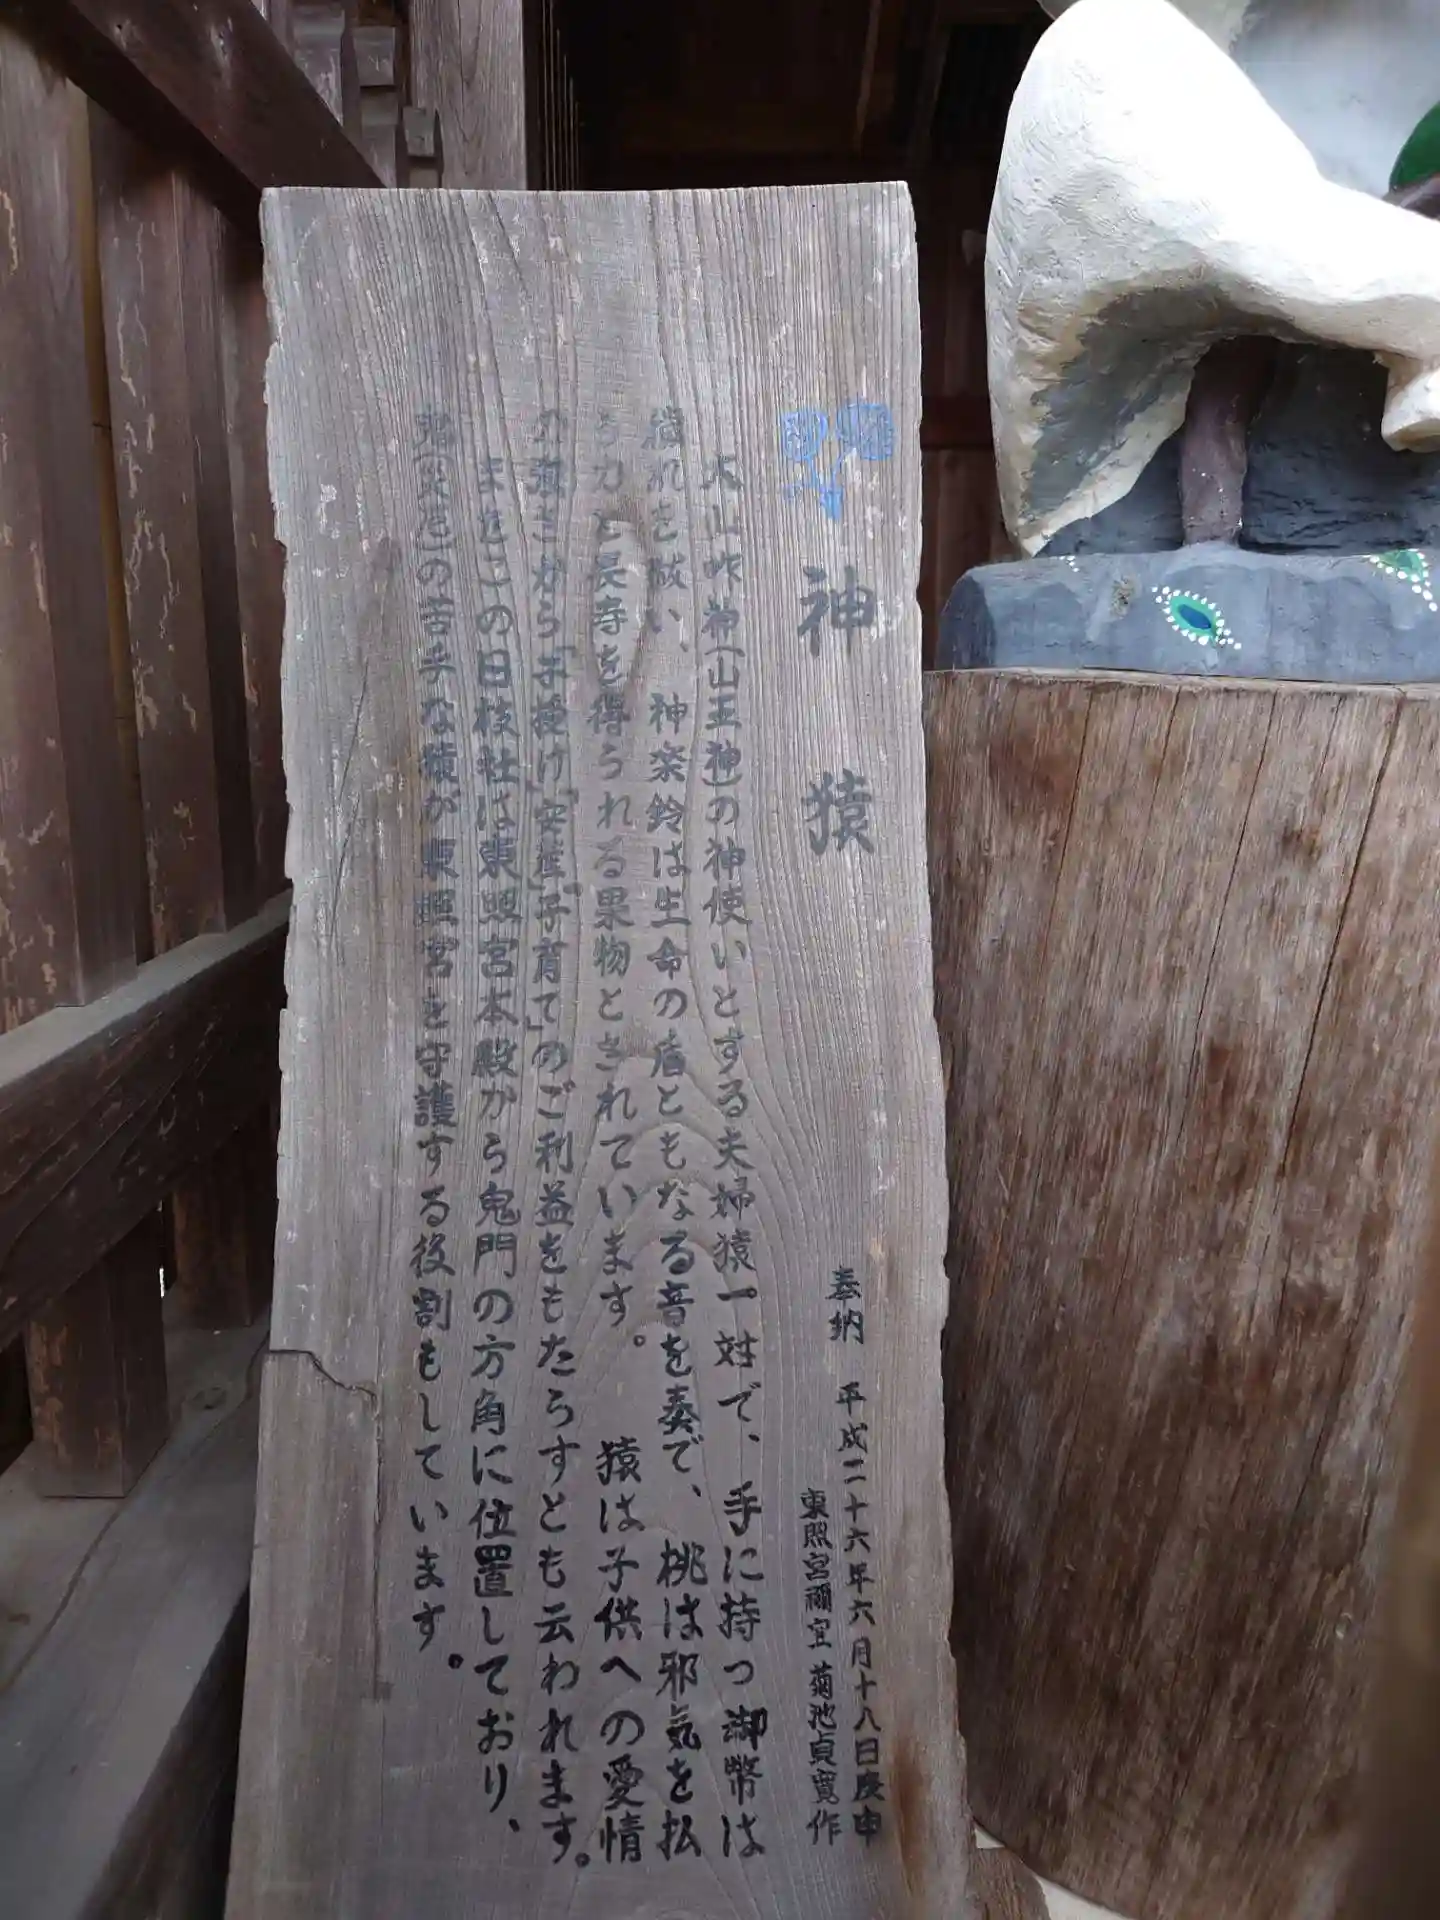 神猿
奉納 平成二十六年六月十八日庚申
東照宮禰宜 菊池貞寛作
大山咋神(山王神)の神使いとする夫婦猿一対で、手に持つ御幣は
穢れを祓い、神楽鈴は生命の盾ともなる音を奏で、桃は邪気を払
う力と長寿を得られる果物とされています。 猿は子供への愛情
の強さから「子授け」「安産」「子育て」のご利益をもたらすとも云われます。
またこの日枝社は東照宮本殿から鬼門の方角に位置しており、
鬼(災)の苦手な猿が東照宮を守護する役割もしています。